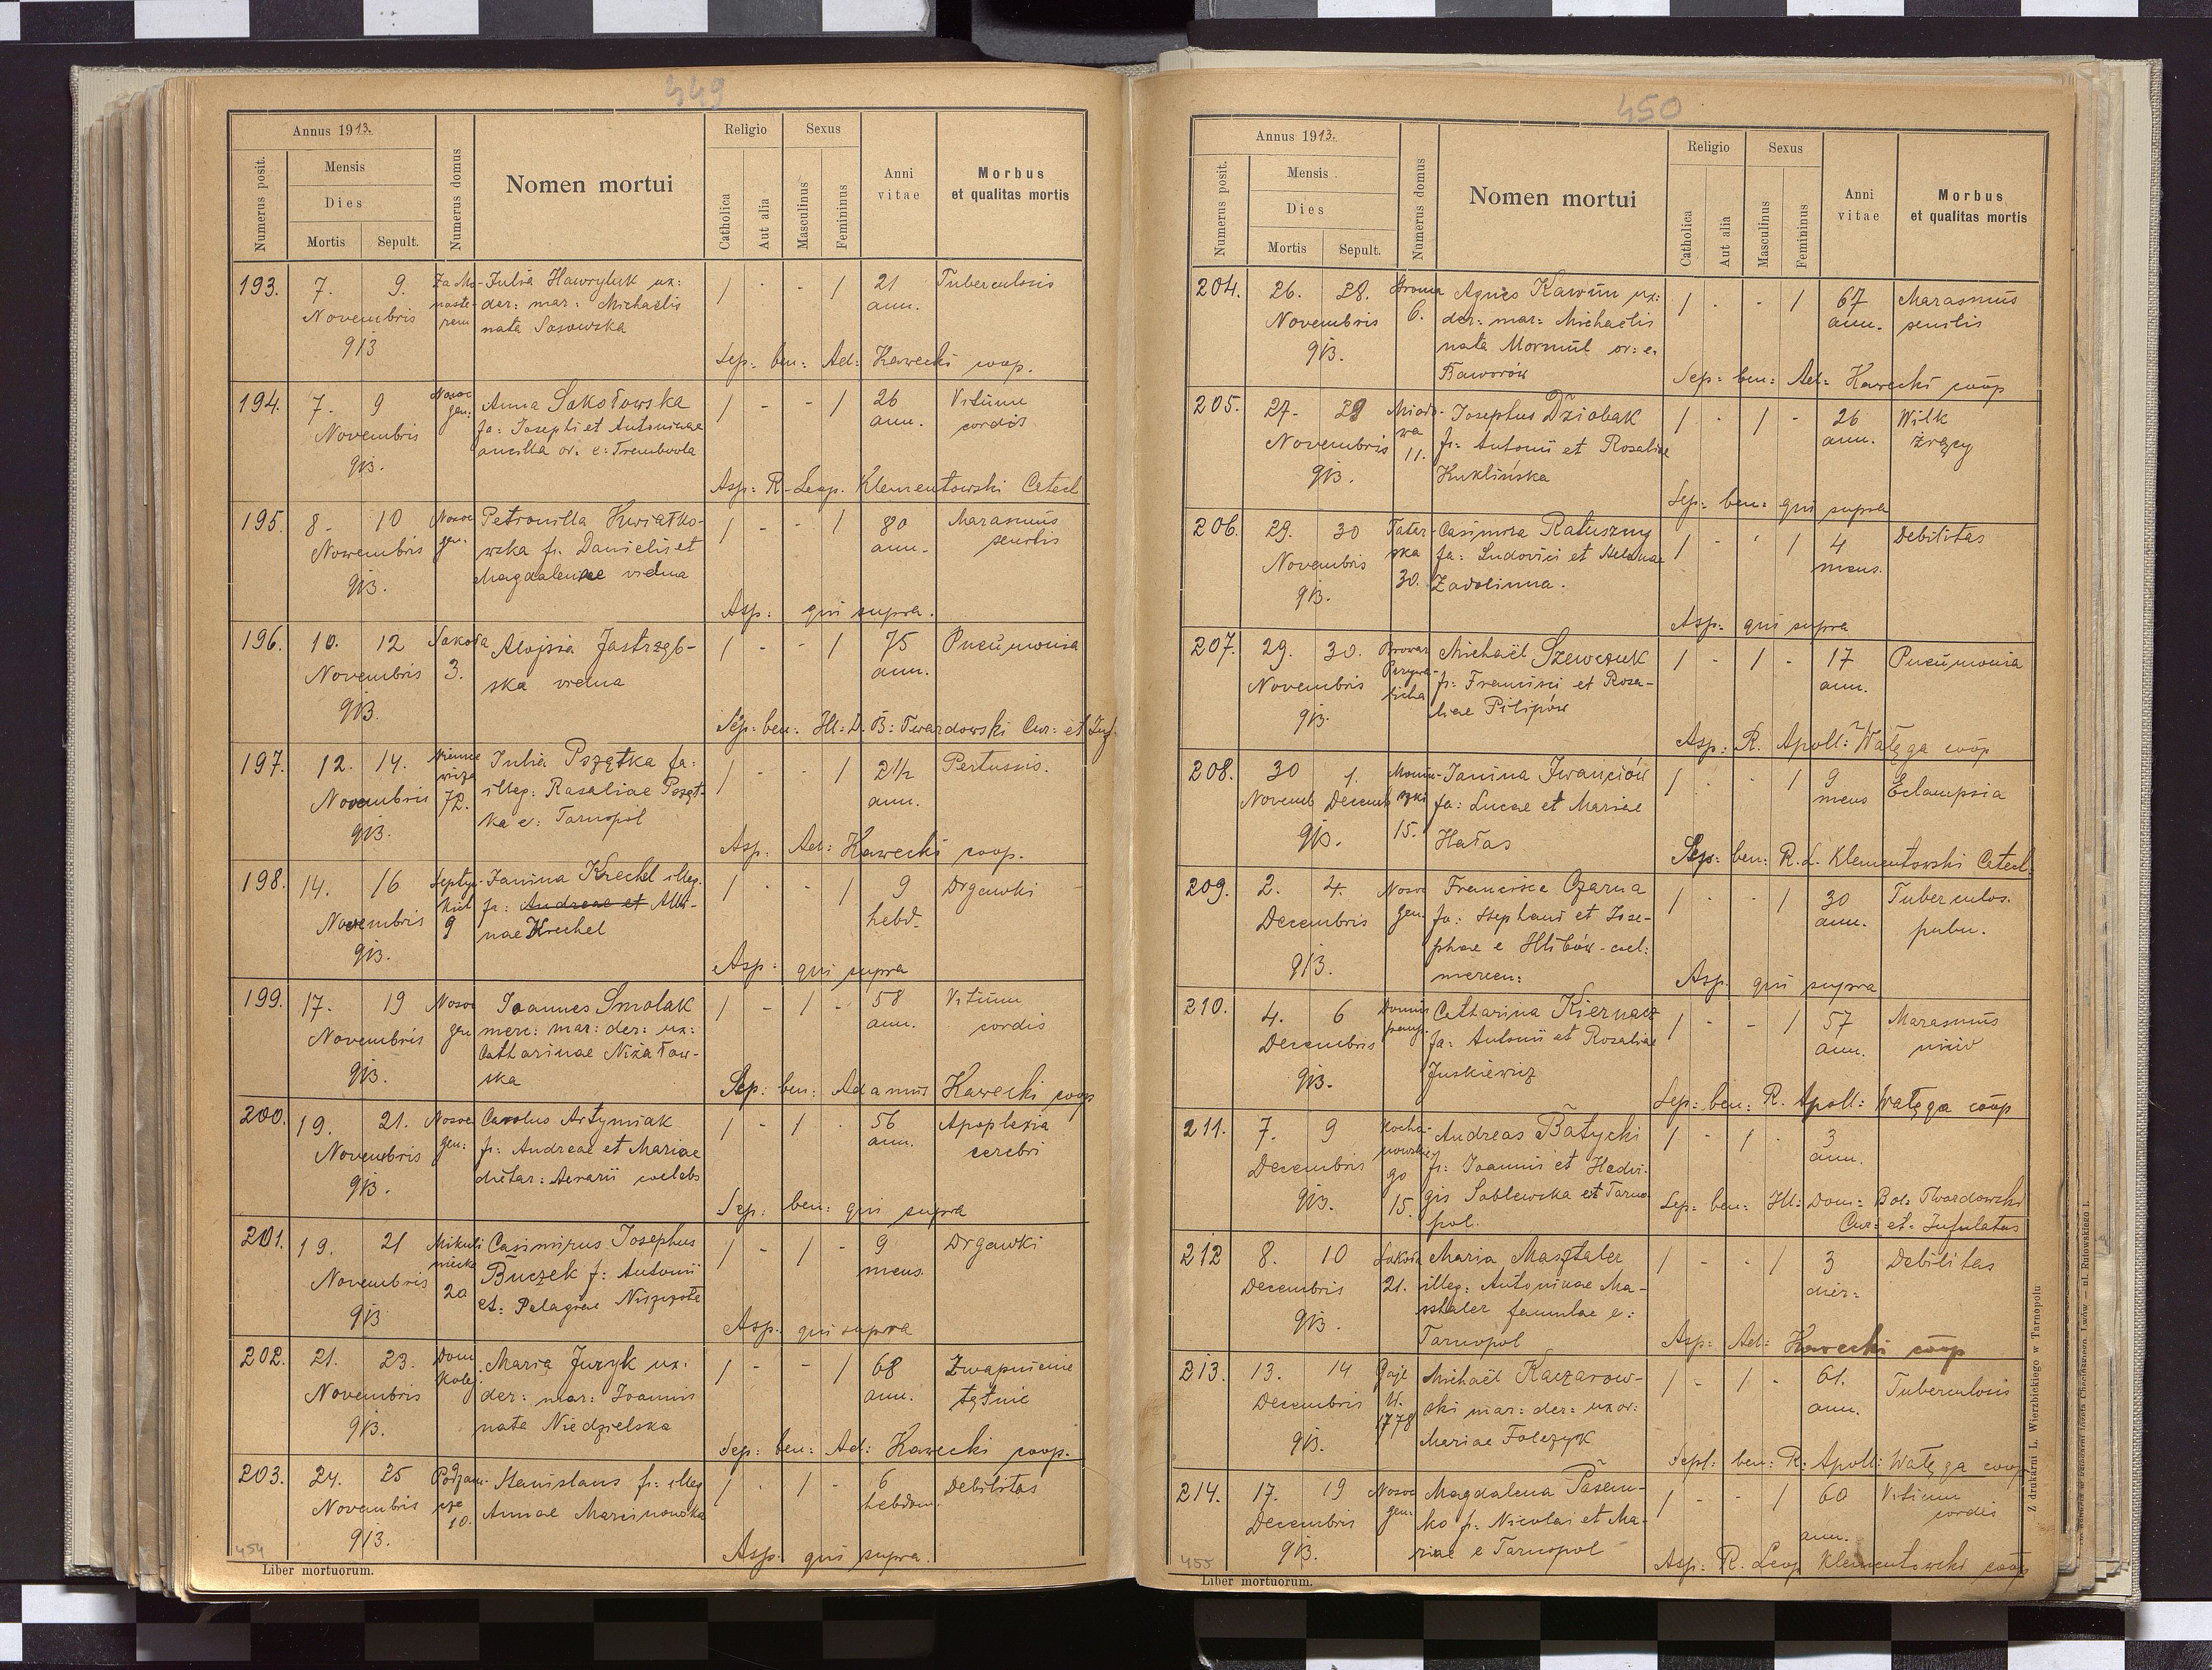 449
Annus 1913.
Mensis
Dies
Mortis
Sepult.
Numerus posit.
Numerus domus
Nomen mortui
Religio
Catholica
Aut alia
Sexus
Masculinus
Femininus
Anni
vitae
Morbus
et qualitas mortis
193. 7. 9. Za Mo- Julia Hawryluk ux: 1 - - 1 21 Tuberculosis
Novembris naste- der: mar: Michaëlis ann.
913 rem nata Sosowska
Sep. ben: Ad: Kawecki coop.
194. 7. 9 Nosoc Anna Sokołowska 1 - - 1 26 Vitium
Novembris gen: fa: Josephi et Antoninae ann. cordis
913. ancilla or. e: Trembowla
Asp: R. Leop. Klementowski Catech
195. 8. 10 Nosoc Petronilla Kwiatko- 1 - - 1 80 Marasmus
Novembris gen. wska f: Danielis et ann. senilis
913. Magdalenae vidua
Asp: qui supra.
196. 10. 12 Sokoła Alojsia Jastrzęb- 1 - - 1 75 Pneumonia
Novembris 3. ska vidua ann.
913.
Sep: ben: Ill: D. B: Twardowski Cur: et Inf.
197. 12. 14. Julia Pszątka fa: 1 - - 1 2½ Pertussis.
Novembris 72. illeg: Rosaliae Psząt- ann.
913. ka e: Tarnopol
Asp: Ad: Kawecki coop.
198. 14. 16 Septyc- Janina Krechel illeg. 1 - - 1 9 Drgawki
Novembris fa: Andreae et Alb- hebd.
913. 9 nae Krechel
Asp: qui supra
199. 17. 19 Nosoc Joannes Smolak 1 - 1 - 58 Vitium
Novembris gen merc: mar: der: ux: ann. cordis
913. Catharinae Niżałow-
ska
Sep: ben: Adamus Kawecki coop
200. 19. 21. Nosoc Carolus Artymiak 1 - 1 - 56 Apoplexia
Novembris gen: f: Andreae et Mariae ann. cerebri
913. dietar: Aerarii coelebs
Sep: ben: qui supra
201. 19. 21 Mikuli Casimirus Josephus 1 - 1 - 9 Drgawki
Novembris niecka Buczek f: Antonii mens.
913 20 et: Pelagiae
Asp: qui supra
202. 21. 23. Dom Maria Juzyk ux: 1 - - 1 68 Zwapnienie
Novembris kolej. der: mar: Joannis ann. tętnic
913. nata Niedzielska
Sep: ben: Ad: Kawecki coop.
203. 24. 25 Podzam- Stanislaus f: illeg 1 - 1 - 6 Debilitas
Novembris cze Annae Marcinowska hebdom.
913. 10.
Asp. qui supra.
454
Liber mortuorum.
450
Annus 1913.
Mensis
Dies
Mortis
Sepult.
Numerus posit.
Numerus domus
Nomen mortui
Religio
Catholica
Aut alia
Sexus
Masculinus
Femininus
Anni
vitae
Morbus
et qualitas mortis
204. 26. 28. Stroma Agnes Kawün ux: 1 - - 1 67 Marasmus
Novembris 6. der: mar: Michaëlis ann. senilis
913. nata Mormul or: e.
Baworów
Sep: ben: Ad: Kawecki coop
205. 27. 29 Miodo- Josephus Dziobak 1 - 1 - 26 Wilk
Novembris wa f: Antonii et Rosaliae ann. żrący
913. 11. Kuklińska
Sep: ben: qui supra
206. 29. 30 Tatar- Casimira Ratuszny 1 - - 1 4 Debilitas
Novembris ska fa: Ludovici et Helenae mens.
913. 30. Zadolinna.
Asp: qui supra
207. 29. 30. Browar Michaël Szewczuk 1 - 1 - 17 Pneumonia
Novembris f: Francisci et Rosa- ann.
913. liae Pilipów
Asp: R. Apoll: Wałęga coop
208. 30 1. Moniu- Janina Iwanciów 1 - - 1 9 Eclampsia
Novemb Decemb szki fa: Lucae et Mariae mens
913. 15. Hałas
Sep: ben: R. L. Klementowski Catech.
209. 2. 4. Nosoc Francisca Czarna 1 - - 1 30 Tuberculos.
Decembris gen. fa: Stephani et Jose- ann. pulm.
913. phae e Hlibów - cael:
mercen:
Asp. qui supra
210. 4. 6 Domus Catharina Kiernacz 1 - - 1 57 Marasmus
Decembris paup. fa: Antonii et Rosaliae ann.
913. Juskiewicz
Sep: ben: R. Apoll: Wałęga coop
211. 7. 9 Kocha- Andreas Batycki 1 - 1 - 3
Decembris nowskie f: Joannis et Hedwi- ann.
913. go 15. gis Soblewska et Tarno-
pol.
Sep: ben: Ill: Dom: Bol: Twardowski
Cur: et. Infulatus
212 8. 10 Sokoła Maria Masztaler 1 - - 1 3 Debilitas
Decembris 21. illeg: Antoninae Ma- dier:
913. sztaler famulae e:
Tarnopol
Asp: Ad: Kawecki coop
213. 13. 14 Gaje Michaël Kaczarow- 1 - 1 - 61. Tuberculosis
Decembris N. ski mar: der: uxor: ann.
913. 1778 Mariae Folczyk
Sepl: ben: R. Apoll: Wałęga coop
214. 17. 19 Nosoc Magdalena Pasem- 1 - - 1 60 Vitium
Decembris gen: ko f: Nicolai et Ma- ann. cordis
913. riae e Tarnopol
Asp: R. Leop Klementowski coop
455
Liber mortuorum.
Z drukarni L. Wierzbickiego w Tarnopolu